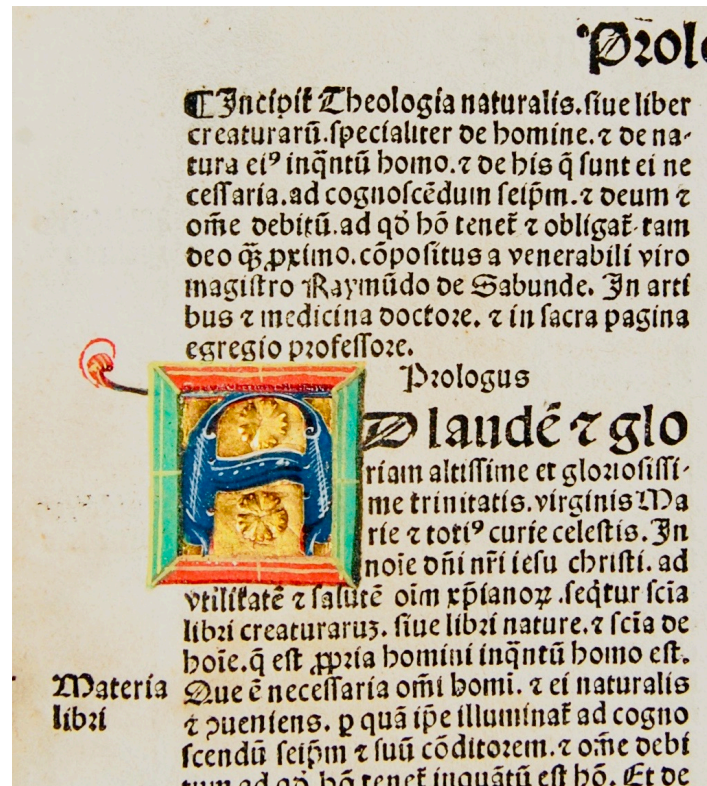 Prolo
¶ Incipit Theologia naturalis.siue liber
creaturarū.specialiter de homine.⁊ de na-
tura eiꝰ inq̄ntū homo.⁊ de his q̄ sunt ei ne
cessaria.ad cognoscēdum seip̄m.⁊ deum ⁊
om̄e debitū.ad qđ hō tenet᷑ ⁊ obligat᷑.tam
deo q̄ꝫ ꝓximo.cōpositus a venerabili viro
magistro Raymūdo de Sabunde. In arti
bus ⁊ medicina doctore. ⁊ in sacra pagina
egregio professore.
Prologus
AD laudē ⁊ glo
riam altissime et gloriosissi-
me trinitatis.virginis Ma
rie ⁊ totiꝰ curie celestis. In
noīe dn̄i nr̄i iesu christi. ad
vtilitatē ⁊ salutē oīm xp̄ianoꝝ .seq̄tur scīa
libri creaturaruꝫ. siue libri nature.⁊ scīa de
hoīe.q̄ est ꝓpria homini inq̄ntū homo est.
Materia
libri
Que ē necessaria om̄i homī. ⁊ ei naturalis
⁊ ꝯueniens. ꝑ quā ip̄e illuminat᷑ ad cogno
scendū seip̄m ⁊ suū cōditorem.⁊ om̄e debi
tum ad qđ hō tenet᷑ inquātū est hō. Et de